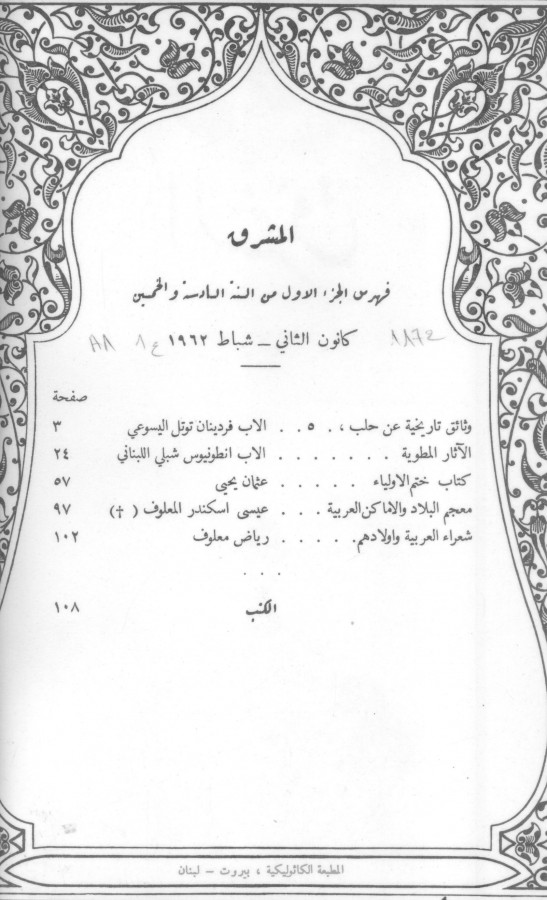 المشرق
فهرس الجزء الاول من السنة السادسة والخمسين
كانون الثاني – شباط ١٩٦٢
صفحة
وثائق تاريخية عن حلب ، ٥ . . الاب فردينان توتل اليسوعي ٣
الآثار المطوية . . . . . . . الاب انطونيوس شبلي اللبناني ٢٤
كتاب ختم الاولياء . . . . . عثمان يحيى ٥٧
معجم البلاد والاماكن العربية . . . عيسى اسكندر المعلوف ( † ) ٩٧
شعراء العربية واولادهم . . . . . رياض معلوف ١٠٢
. . .
الكتب ١٠٨
المطبعة الكاثوليكية ، بيروت – لبنان